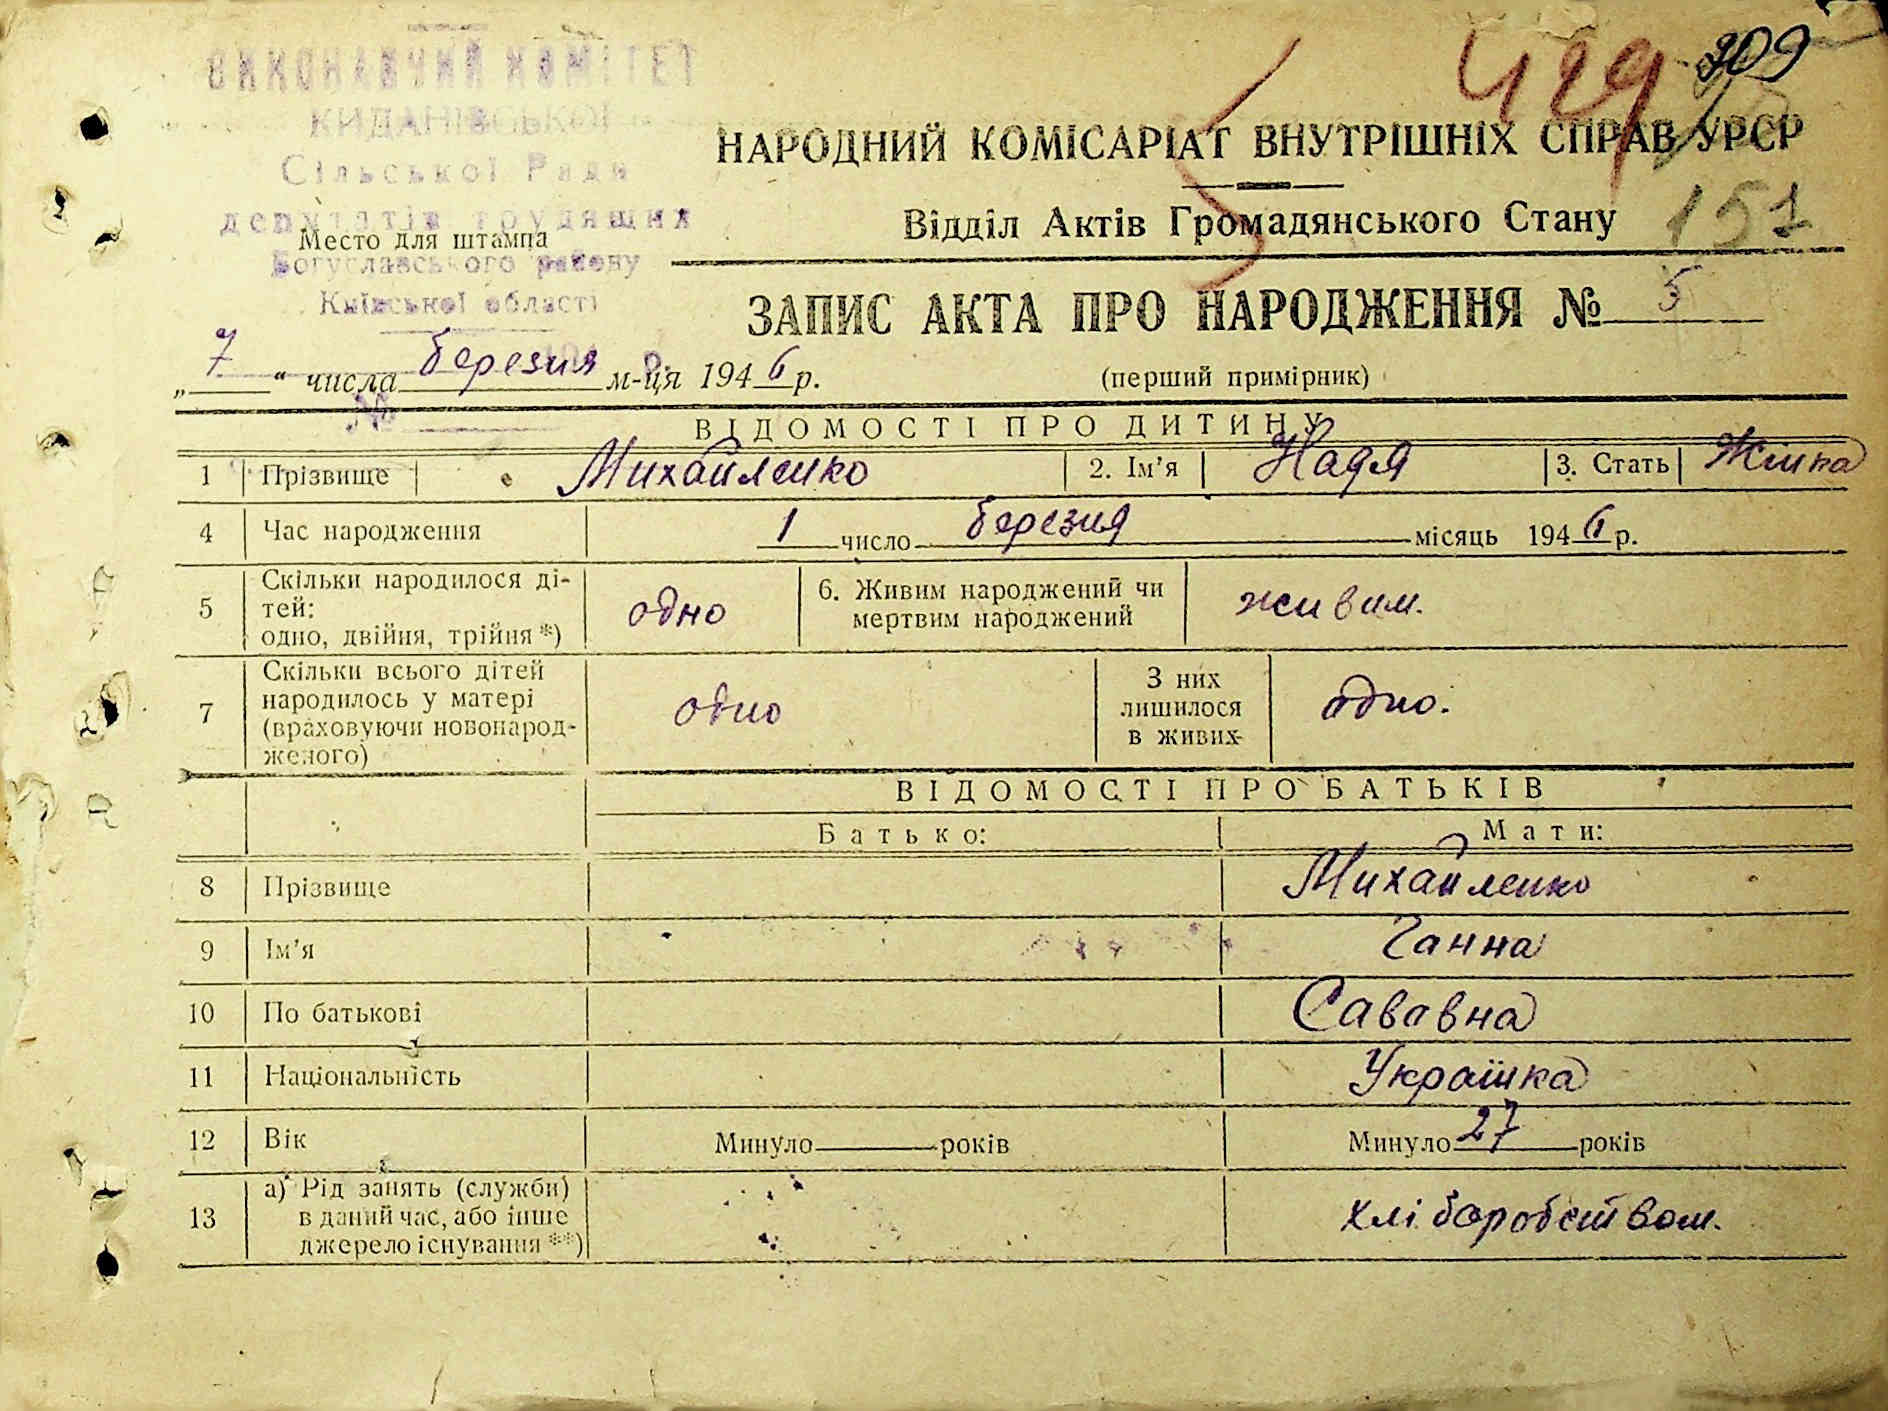 ВИКОНАВЧИЙ КОМІТЕТ
КИДАНІВСЬКОЇ
Сільської Ради
депутатів трудящих
Богуславського району
Київської області
Место для штампа
429 309
151
НАРОДНИЙ КОМІСАРІАТ ВНУТРІШНІХ СПРАВ УРСР
Відділ Актів Громадянського Стану
ЗАПИС АКТА ПРО НАРОДЖЕННЯ № 5
„7“ числа березня м-ця 1946 р. (перший примірник)
ВІДОМОСТІ ПРО ДИТИНУ
1 Прізвище Михайленко 2. Ім’я Надя 3. Стать Жінка
4 Час народження 1 число березня місяць 1946 р.
5 Скільки народилося ді-
тей:
одно, двійня, трійня *) одно 6. Живим народжений чи
мертвим народжений живим.
7 Скільки всього дітей
народилось у матері
(враховуючи новонарод-
женого) одно З них
лишилося
в живих одно.
ВІДОМОСТІ ПРО БАТЬКІВ
Батько: Мати:
8 Прізвище Михайленко
9 Ім’я Ганна
10 По батькові Сававна
11 Національність Українка
12 Вік Минуло років Минуло 27 років
13 а) Рід занять (служби)
в даний час, або інше
джерело існування **) хліборобством.